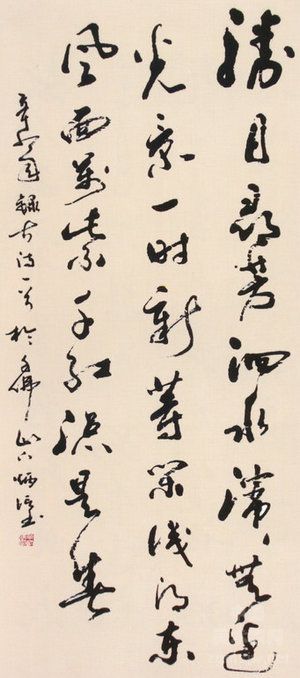 勝日尋芳泗水濱無邊
光景一時新等閒識得東
風面萬紫千紅總是春
錄古詩一首於千佛山下